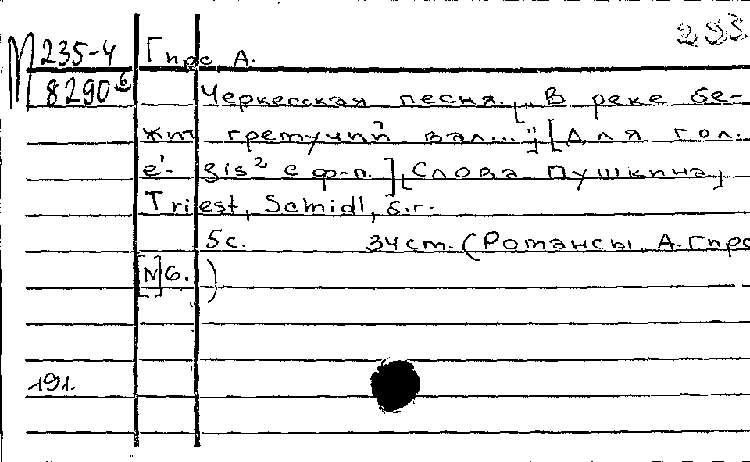 293
М 235-4 Гирс, А.
8290⁶ Черкесская песня. ["В реке бе-
жит гремучий вал..."] [Для гол.
e'- gis² с ф-п.] [Слова Пушкина]
Triest, Schmidl, б.г.
5с. 34 см. (Романсы А. Гирс
[N]6.)
191.